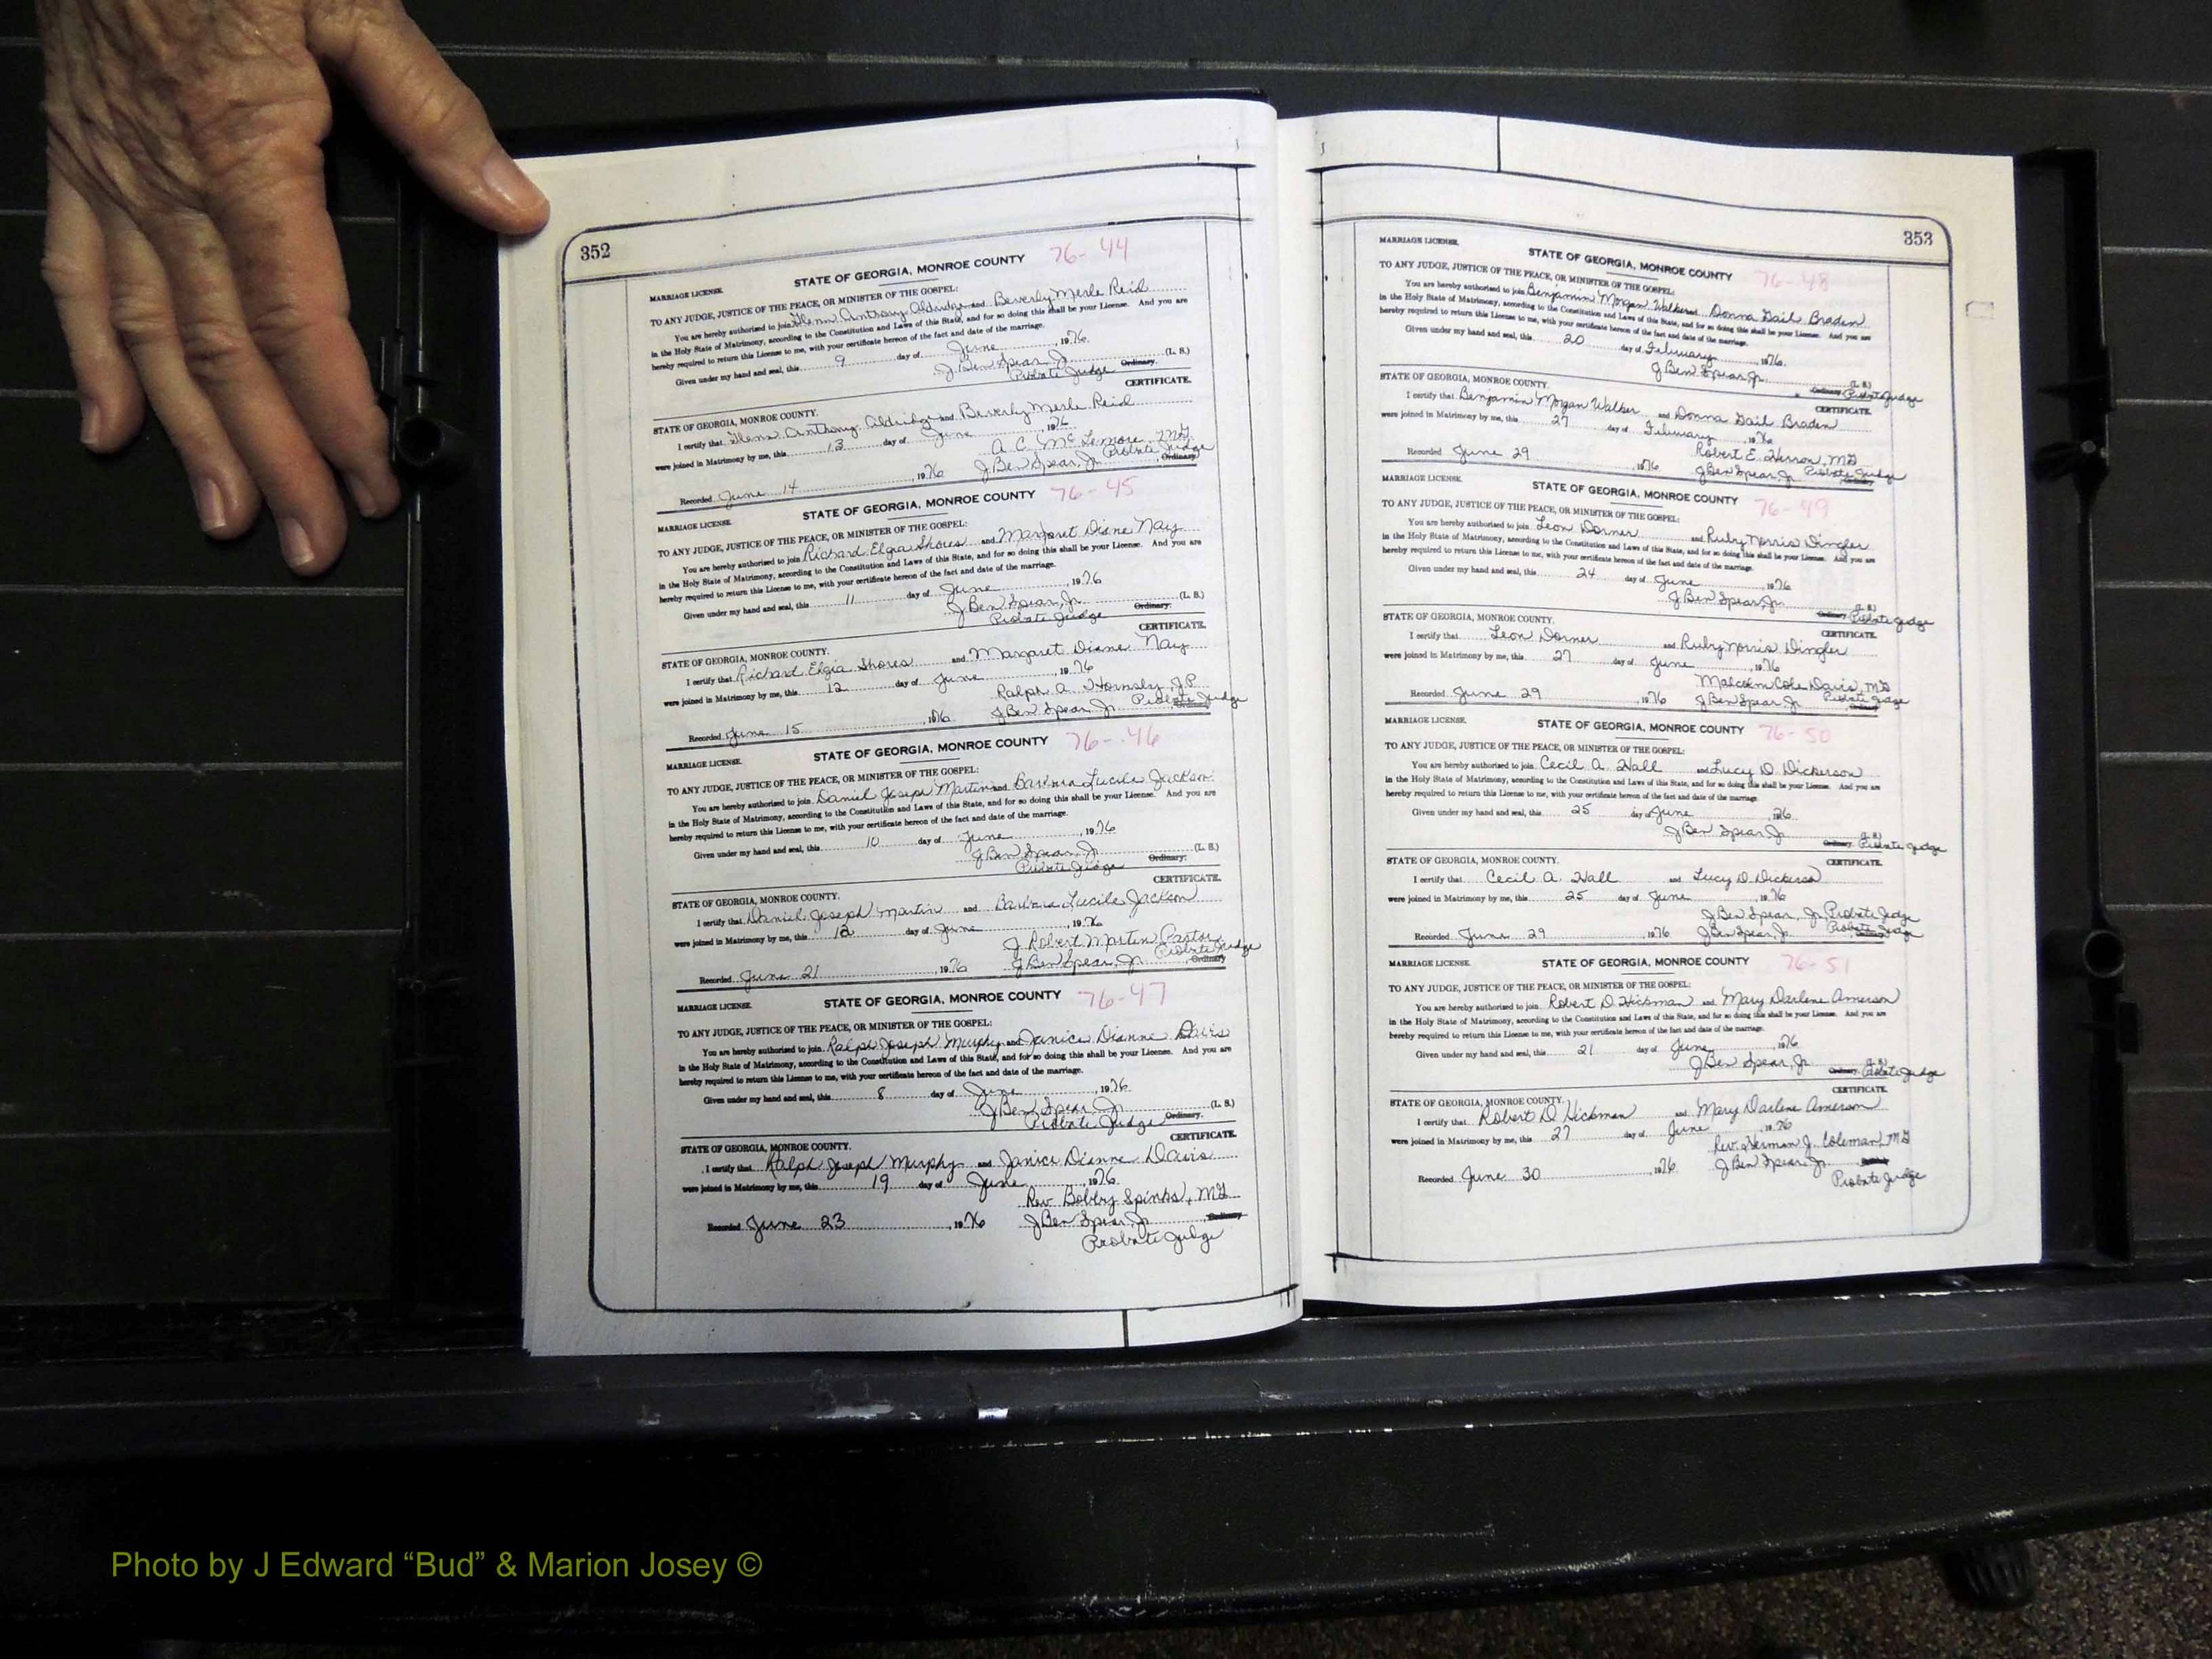 352
76-44
MARRIAGE LICENSE. STATE OF GEORGIA, MONROE COUNTY
TO ANY JUDGE, JUSTICE OF THE PEACE, OR MINISTER OF THE GOSPEL:
You are hereby authorized to join Glenn Anthony Aldridge and Beverly Merle Reid
in the Holy State of Matrimony, according to the Constitution and Laws of this State, and for so doing this shall be your License. And you are
hereby required to return this License to me, with your certificate hereon of the fact and date of the marriage.
Given under my hand and seal, this 9 day of June, 1976.
J Ben Spear, Jr. (L. S.)
Probate Judge Ordinary.
STATE OF GEORGIA, MONROE COUNTY. CERTIFICATE.
I certify that Glenn Anthony Aldridge and Beverly Merle Reid
were joined in Matrimony by me, this 13 day of June, 1976
A. C. McLemore, MG
Recorded June 14, 1976 J Ben Spear, Jr. Probate Judge Ordinary
76-45
MARRIAGE LICENSE. STATE OF GEORGIA, MONROE COUNTY
TO ANY JUDGE, JUSTICE OF THE PEACE, OR MINISTER OF THE GOSPEL:
You are hereby authorized to join Richard Elgia Shores and Margaret Diane Nay
in the Holy State of Matrimony, according to the Constitution and Laws of this State, and for so doing this shall be your License. And you are
hereby required to return this License to me, with your certificate hereon of the fact and date of the marriage.
Given under my hand and seal, this 11 day of June, 1976
J Ben Spear, Jr. (L. S.)
Probate Judge Ordinary.
STATE OF GEORGIA, MONROE COUNTY. CERTIFICATE.
I certify that Richard Elgia Shores and Margaret Diane Nay
were joined in Matrimony by me, this 12 day of June, 1976
Ralph A. Hornsby, J.P.
Recorded June 15, 1976 J Ben Spear, Jr. Probate Judge Ordinary
76-46
MARRIAGE LICENSE. STATE OF GEORGIA, MONROE COUNTY
TO ANY JUDGE, JUSTICE OF THE PEACE, OR MINISTER OF THE GOSPEL:
You are hereby authorized to join Daniel Joseph Martin and Barbara Lucile Jackson
in the Holy State of Matrimony, according to the Constitution and Laws of this State, and for so doing this shall be your License. And you are
hereby required to return this License to me, with your certificate hereon of the fact and date of the marriage.
Given under my hand and seal, this 10 day of June, 1976
J Ben Spear, Jr. (L. S.)
Probate Judge Ordinary.
STATE OF GEORGIA, MONROE COUNTY. CERTIFICATE.
I certify that Daniel Joseph Martin and Barbara Lucile Jackson
were joined in Matrimony by me, this 12 day of June, 1976
J Robert Martin, Pastor
Recorded June 21, 1976 J Ben Spear, Jr. Probate Judge Ordinary
76-47
MARRIAGE LICENSE. STATE OF GEORGIA, MONROE COUNTY
TO ANY JUDGE, JUSTICE OF THE PEACE, OR MINISTER OF THE GOSPEL:
You are hereby authorized to join Ralph Joseph Murphy and Janice Dianne Davis
in the Holy State of Matrimony, according to the Constitution and Laws of this State, and for so doing this shall be your License. And you are
hereby required to return this License to me, with your certificate hereon of the fact and date of the marriage.
Given under my hand and seal, this 8 day of June, 1976
J Ben Spear, Jr. (L. S.)
Probate Judge Ordinary.
STATE OF GEORGIA, MONROE COUNTY. CERTIFICATE.
I certify that Ralph Joseph Murphy and Janice Dianne Davis
were joined in Matrimony by me, this 19 day of June, 1976
Rev. Bobby Spinks, MG
Recorded June 23, 1976 J Ben Spear, Jr. Ordinary
Probate Judge
353
76-48
MARRIAGE LICENSE. STATE OF GEORGIA, MONROE COUNTY
TO ANY JUDGE, JUSTICE OF THE PEACE, OR MINISTER OF THE GOSPEL:
You are hereby authorized to join Benjamin Morgan Walker and Donna Gail Braden
in the Holy State of Matrimony, according to the Constitution and Laws of this State, and for so doing this shall be your License. And you are
hereby required to return this License to me, with your certificate hereon of the fact and date of the marriage.
Given under my hand and seal, this 20 day of February, 1976.
J Ben Spear, Jr. (L. S.)
Ordinary. Probate Judge
STATE OF GEORGIA, MONROE COUNTY. CERTIFICATE.
I certify that Benjamin Morgan Walker and Donna Gail Braden
were joined in Matrimony by me, this 27 day of February, 1976
Robert E. Herron, MG
Recorded June 29, 1976 J Ben Spear, Jr. Probate Judge
76-49
MARRIAGE LICENSE. STATE OF GEORGIA, MONROE COUNTY
TO ANY JUDGE, JUSTICE OF THE PEACE, OR MINISTER OF THE GOSPEL:
You are hereby authorized to join Leon Dorner and Ruby Norris Dingler
in the Holy State of Matrimony, according to the Constitution and Laws of this State, and for so doing this shall be your License. And you are
hereby required to return this License to me, with your certificate hereon of the fact and date of the marriage.
Given under my hand and seal, this 24 day of June, 1976
J Ben Spear, Jr. (L. S.)
Ordinary. Probate Judge
STATE OF GEORGIA, MONROE COUNTY. CERTIFICATE.
I certify that Leon Dorner and Ruby Norris Dingler
were joined in Matrimony by me, this 27 day of June, 1976
Malcolm Cole Davis, MG
Recorded June 29, 1976 J Ben Spear, Jr. Probate Judge
76-50
MARRIAGE LICENSE. STATE OF GEORGIA, MONROE COUNTY
TO ANY JUDGE, JUSTICE OF THE PEACE, OR MINISTER OF THE GOSPEL:
You are hereby authorized to join Cecil A. Hall and Lucy D Dickerson
in the Holy State of Matrimony, according to the Constitution and Laws of this State, and for so doing this shall be your License. And you are
hereby required to return this License to me, with your certificate hereon of the fact and date of the marriage.
Given under my hand and seal, this 25 day of June, 1976.
J Ben Spear, Jr. (L. S.)
Ordinary. Probate Judge
STATE OF GEORGIA, MONROE COUNTY. CERTIFICATE.
I certify that Cecil A. Hall and Lucy D. Dickerson
were joined in Matrimony by me, this 25 day of June, 1976
J Ben Spear, Jr, Probate Judge
Recorded June 29, 1976 J Ben Spear, Jr. Probate Judge
76-51
MARRIAGE LICENSE. STATE OF GEORGIA, MONROE COUNTY
TO ANY JUDGE, JUSTICE OF THE PEACE, OR MINISTER OF THE GOSPEL:
You are hereby authorized to join Robert D. Hickman and Mary Darlene Amerson
in the Holy State of Matrimony, according to the Constitution and Laws of this State, and for so doing this shall be your License. And you are
hereby required to return this License to me, with your certificate hereon of the fact and date of the marriage.
Given under my hand and seal, this 21 day of June, 1976
J Ben Spear, Jr. (L. S.)
Ordinary. Probate Judge
STATE OF GEORGIA, MONROE COUNTY. CERTIFICATE.
I certify that Robert D. Hickman and Mary Darlene Amerson
were joined in Matrimony by me, this 27 day of June, 1976
Rev. Herman J. Coleman, MG
Recorded June 30, 1976. J Ben Spear, Jr.
Probate Judge
Photo by J Edward “Bud” & Marion Josey ©